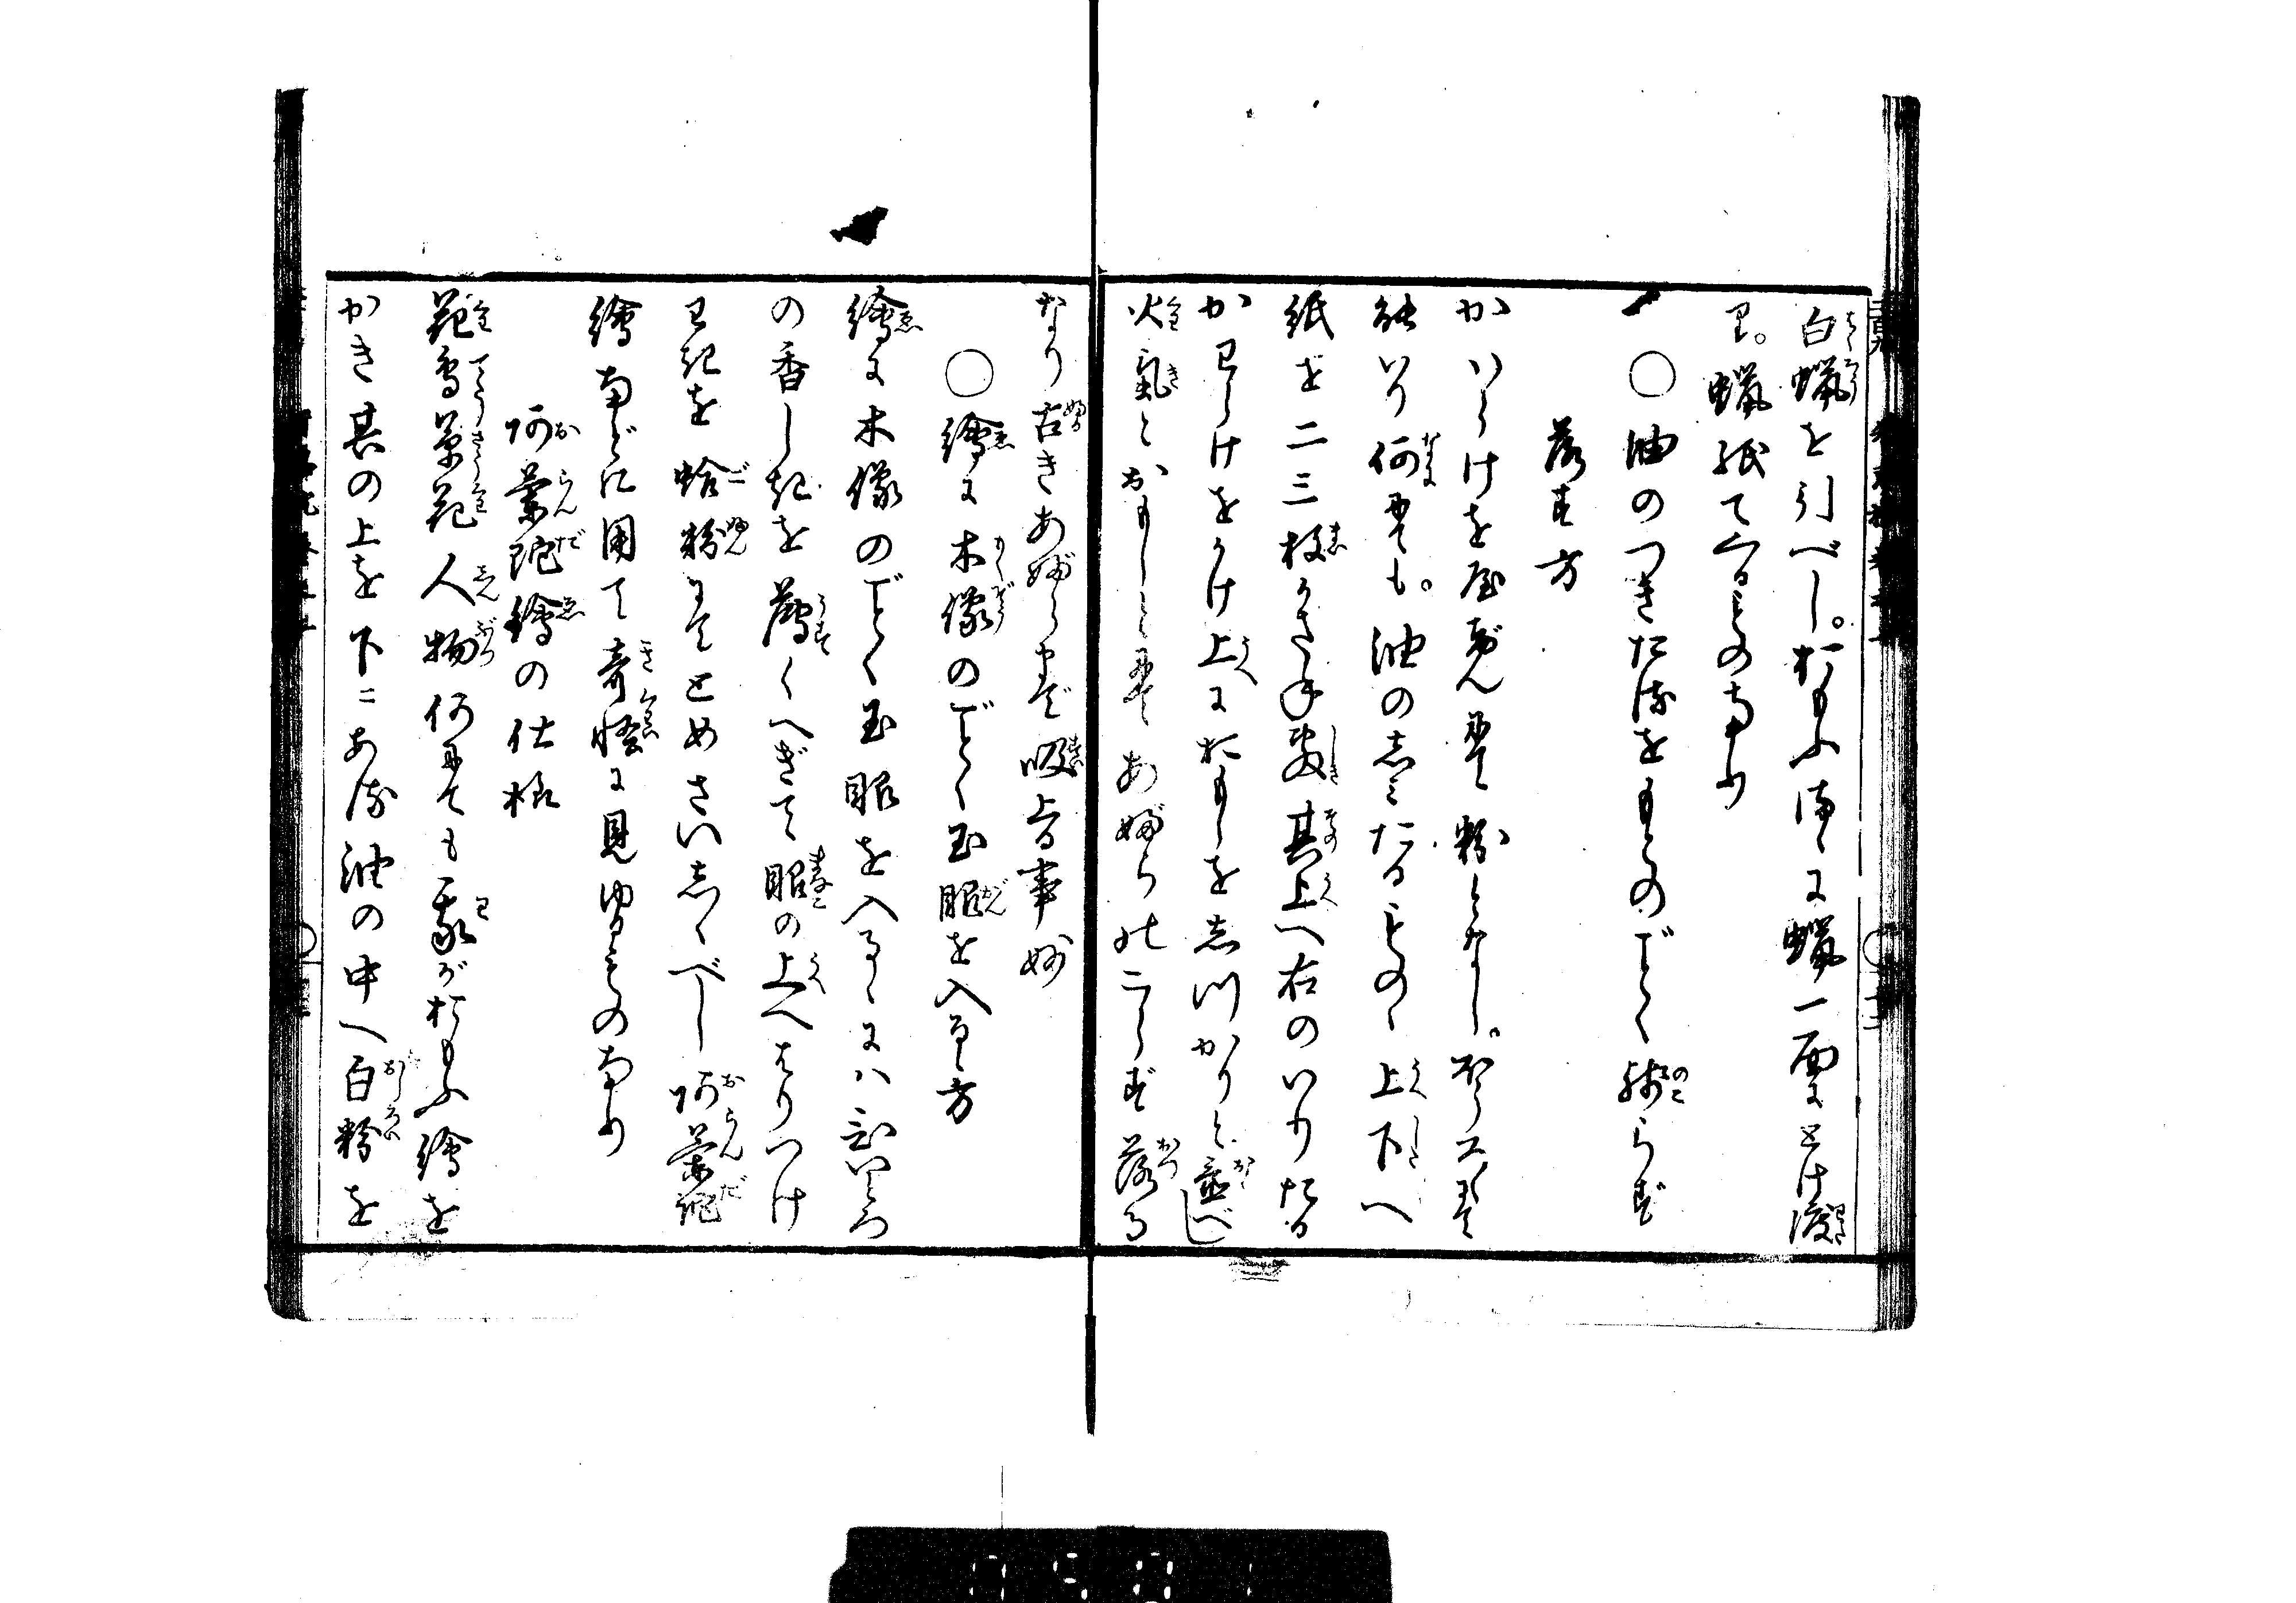 白蝋を引べし。おもふまゝに蝋一面にとけ渡
り。蝋紙て上るもの也
○油のつきたるをもとのごとく残らず
落す方
かいらけを屋げん にて粉となし。
能いり何にても。油のしみたるものゝ上下へ
紙を二三枚かさね敷其上へ右のいりたる
かわらけをかけ上におもしを しつかりと置べし
火気とおもしとにてあぶらのこらず落る
なり古きあぶらまで吸とる事妙
○絵に木像のごとく玉眼を入るゝ方
絵に木像のごとく玉眼を入るゝにハ
の香しきを薄くへぎて眼の上へはりつけ
わきを蛤粉にてとめさいしくべし阿蘭陀
絵などに用て奇怪に見ゆるものなり
阿蘭陀絵の仕様
花鳥草花人物何にても我がおもふ絵を
かき其の上を下ニある油の中へ白粉を